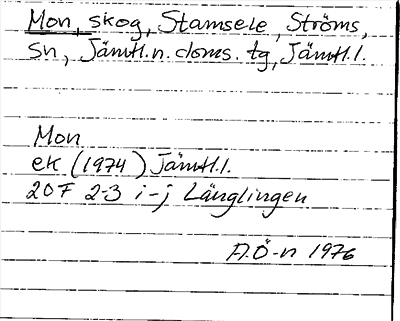 Mon, skog, Stamsele, Ströms,
sn, Jämtl.n. doms. tg, Jämtl.l.
Mon
ek (1974) Jämtl.l.
20F 2-3 i-j Länglingen
A.Ö-n 1976